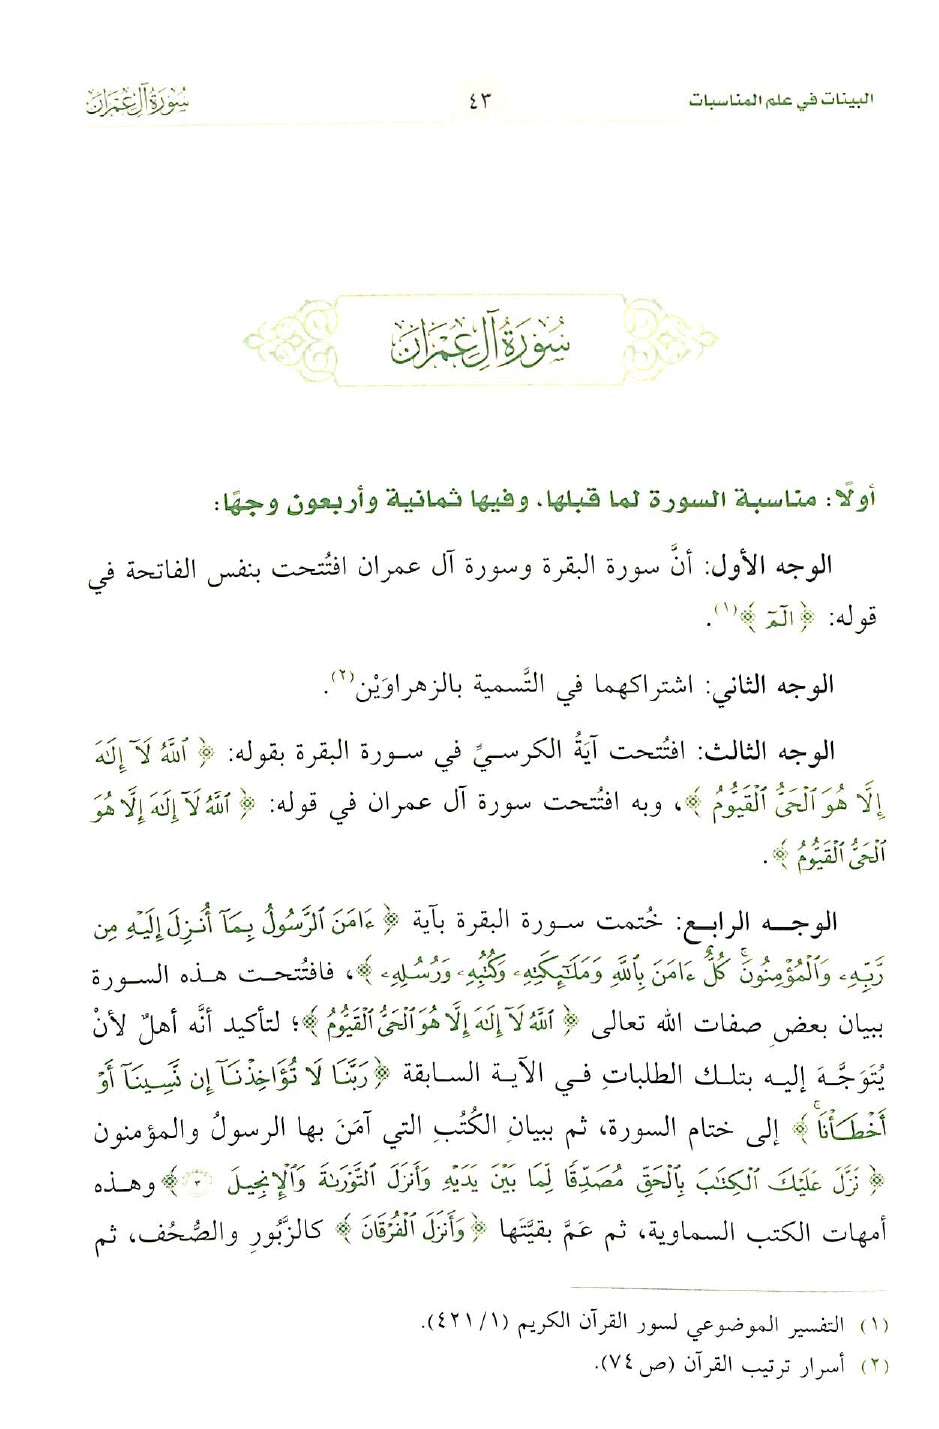 البينات في علم المناسبات
٤٣
سُورَةُ آلِ عِمْرَانَ
سُورَةُ آلِ عِمْرَانَ
أولًا: مناسبة السورة لما قبلها، وفيها ثمانية وأربعون وجهًا:
الوجه الأول: أنَّ سورة البقرة وسورة آل عمران افتُتحت بنفس الفاتحة في
قوله: ﴿ الٓمٓ ﴾(١).
الوجه الثاني: اشتراكهما في التَّسمية بالزهراوَيْن(٢).
الوجه الثالث: افتُتحت آيَةُ الكرسيِّ في سورة البقرة بقوله: ﴿ ٱللَّهُ لَآ إِلَٰهَ
إِلَّا هُوَ ٱلْحَىُّ ٱلْقَيُّومُ ﴾، وبه افتُتحت سورة آل عمران في قوله: ﴿ ٱللَّهُ لَآ إِلَٰهَ إِلَّا هُوَ
ٱلْحَىُّ ٱلْقَيُّومُ ﴾.
الوجه الرابع: خُتمت سورة البقرة بآية ﴿ ءَامَنَ ٱلرَّسُولُ بِمَآ أُنزِلَ إِلَيْهِ مِن
رَّبِّهِۦ وَٱلْمُؤْمِنُونَ ۚ كُلٌّ ءَامَنَ بِٱللَّهِ وَمَلَٰٓئِكَتِهِۦ وَكُتُبِهِۦ وَرُسُلِهِۦ ﴾، فافتُتحت هذه السورة
ببيان بعضِ صفات الله تعالى ﴿ ٱللَّهُ لَآ إِلَٰهَ إِلَّا هُوَ ٱلْحَىُّ ٱلْقَيُّومُ ﴾؛ لتأكيد أنَّه أهلٌ لأنْ
يُتَوَجَّهَ إليه بتلك الطلباتِ في الآية السابقة ﴿ رَبَّنَا لَا تُؤَاخِذْنَآ إِن نَّسِينَآ أَوْ
أَخْطَأْنَا ۚ ﴾ إلى ختام السورة، ثم ببيانِ الكُتُبِ التي آمَنَ بها الرسولُ والمؤمنون
﴿ نَزَّلَ عَلَيْكَ ٱلْكِتَٰبَ بِٱلْحَقِّ مُصَدِّقًا لِّمَا بَيْنَ يَدَيْهِ وَأَنزَلَ ٱلتَّوْرَىٰةَ وَٱلْإِنجِيلَ ٣ ﴾ وهذه
أمهات الكتب السماوية، ثم عَمَّ بقيَّتَها ﴿ وَأَنزَلَ ٱلْفُرْقَانَ ﴾ كالزَّبُورِ والصُّحُف، ثم
(١) التفسير الموضوعي لسور القرآن الكريم (١/ ٤٢١).
(٢) أسرار ترتيب القرآن (ص ٧٤).